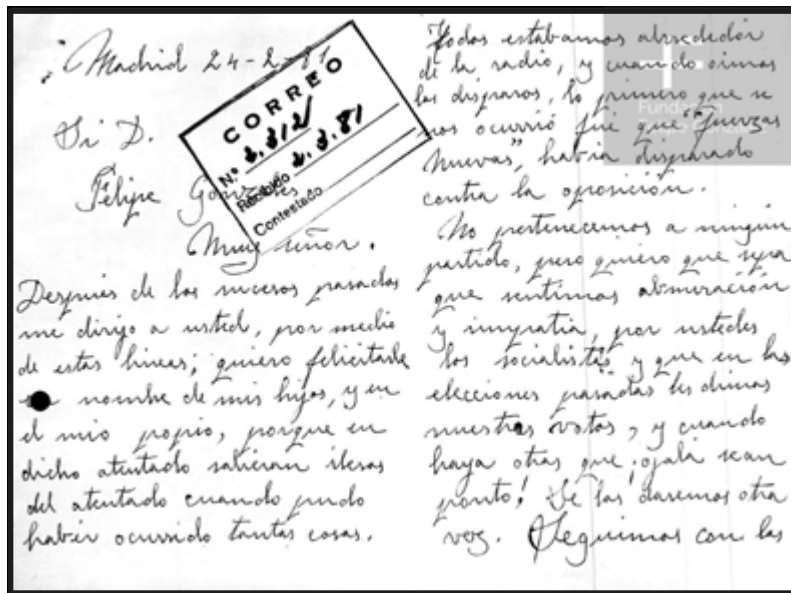 Madrid 24-2-81
Sr D.
Felipe Gonzales
Muy señor.
Después de los sucesos pasados
me dirijo a usted, por medio
de estas lineas; quiero felicitarle
nombre de mis hijos, y en
el mio propio, porque en
dicho atentado salieran ilesos
del atentado cuando pudo
haber ocurrido tantas cosas.
CORREO
N.º 2.312
Recibido 2.3.81
Contestado
Todos estabamos alrededor
de la radio, y cuando oimos
los disparos, lo primero que se
nos ocurrió fué que "fuerzas
nuevas", habia disparado
contra la oposición.
No pertenecemos a ningún
partido, pero quiero que sepa
que sentimos
y simpatia, por ustedes
los socialistas y que en las
elecciones pasadas les dimos
nuestros votos, y cuando
haya otras que ¡ojalá sean
pronto! Se los daremos otra
vez. Seguimos con las
Fundación
Felipe González